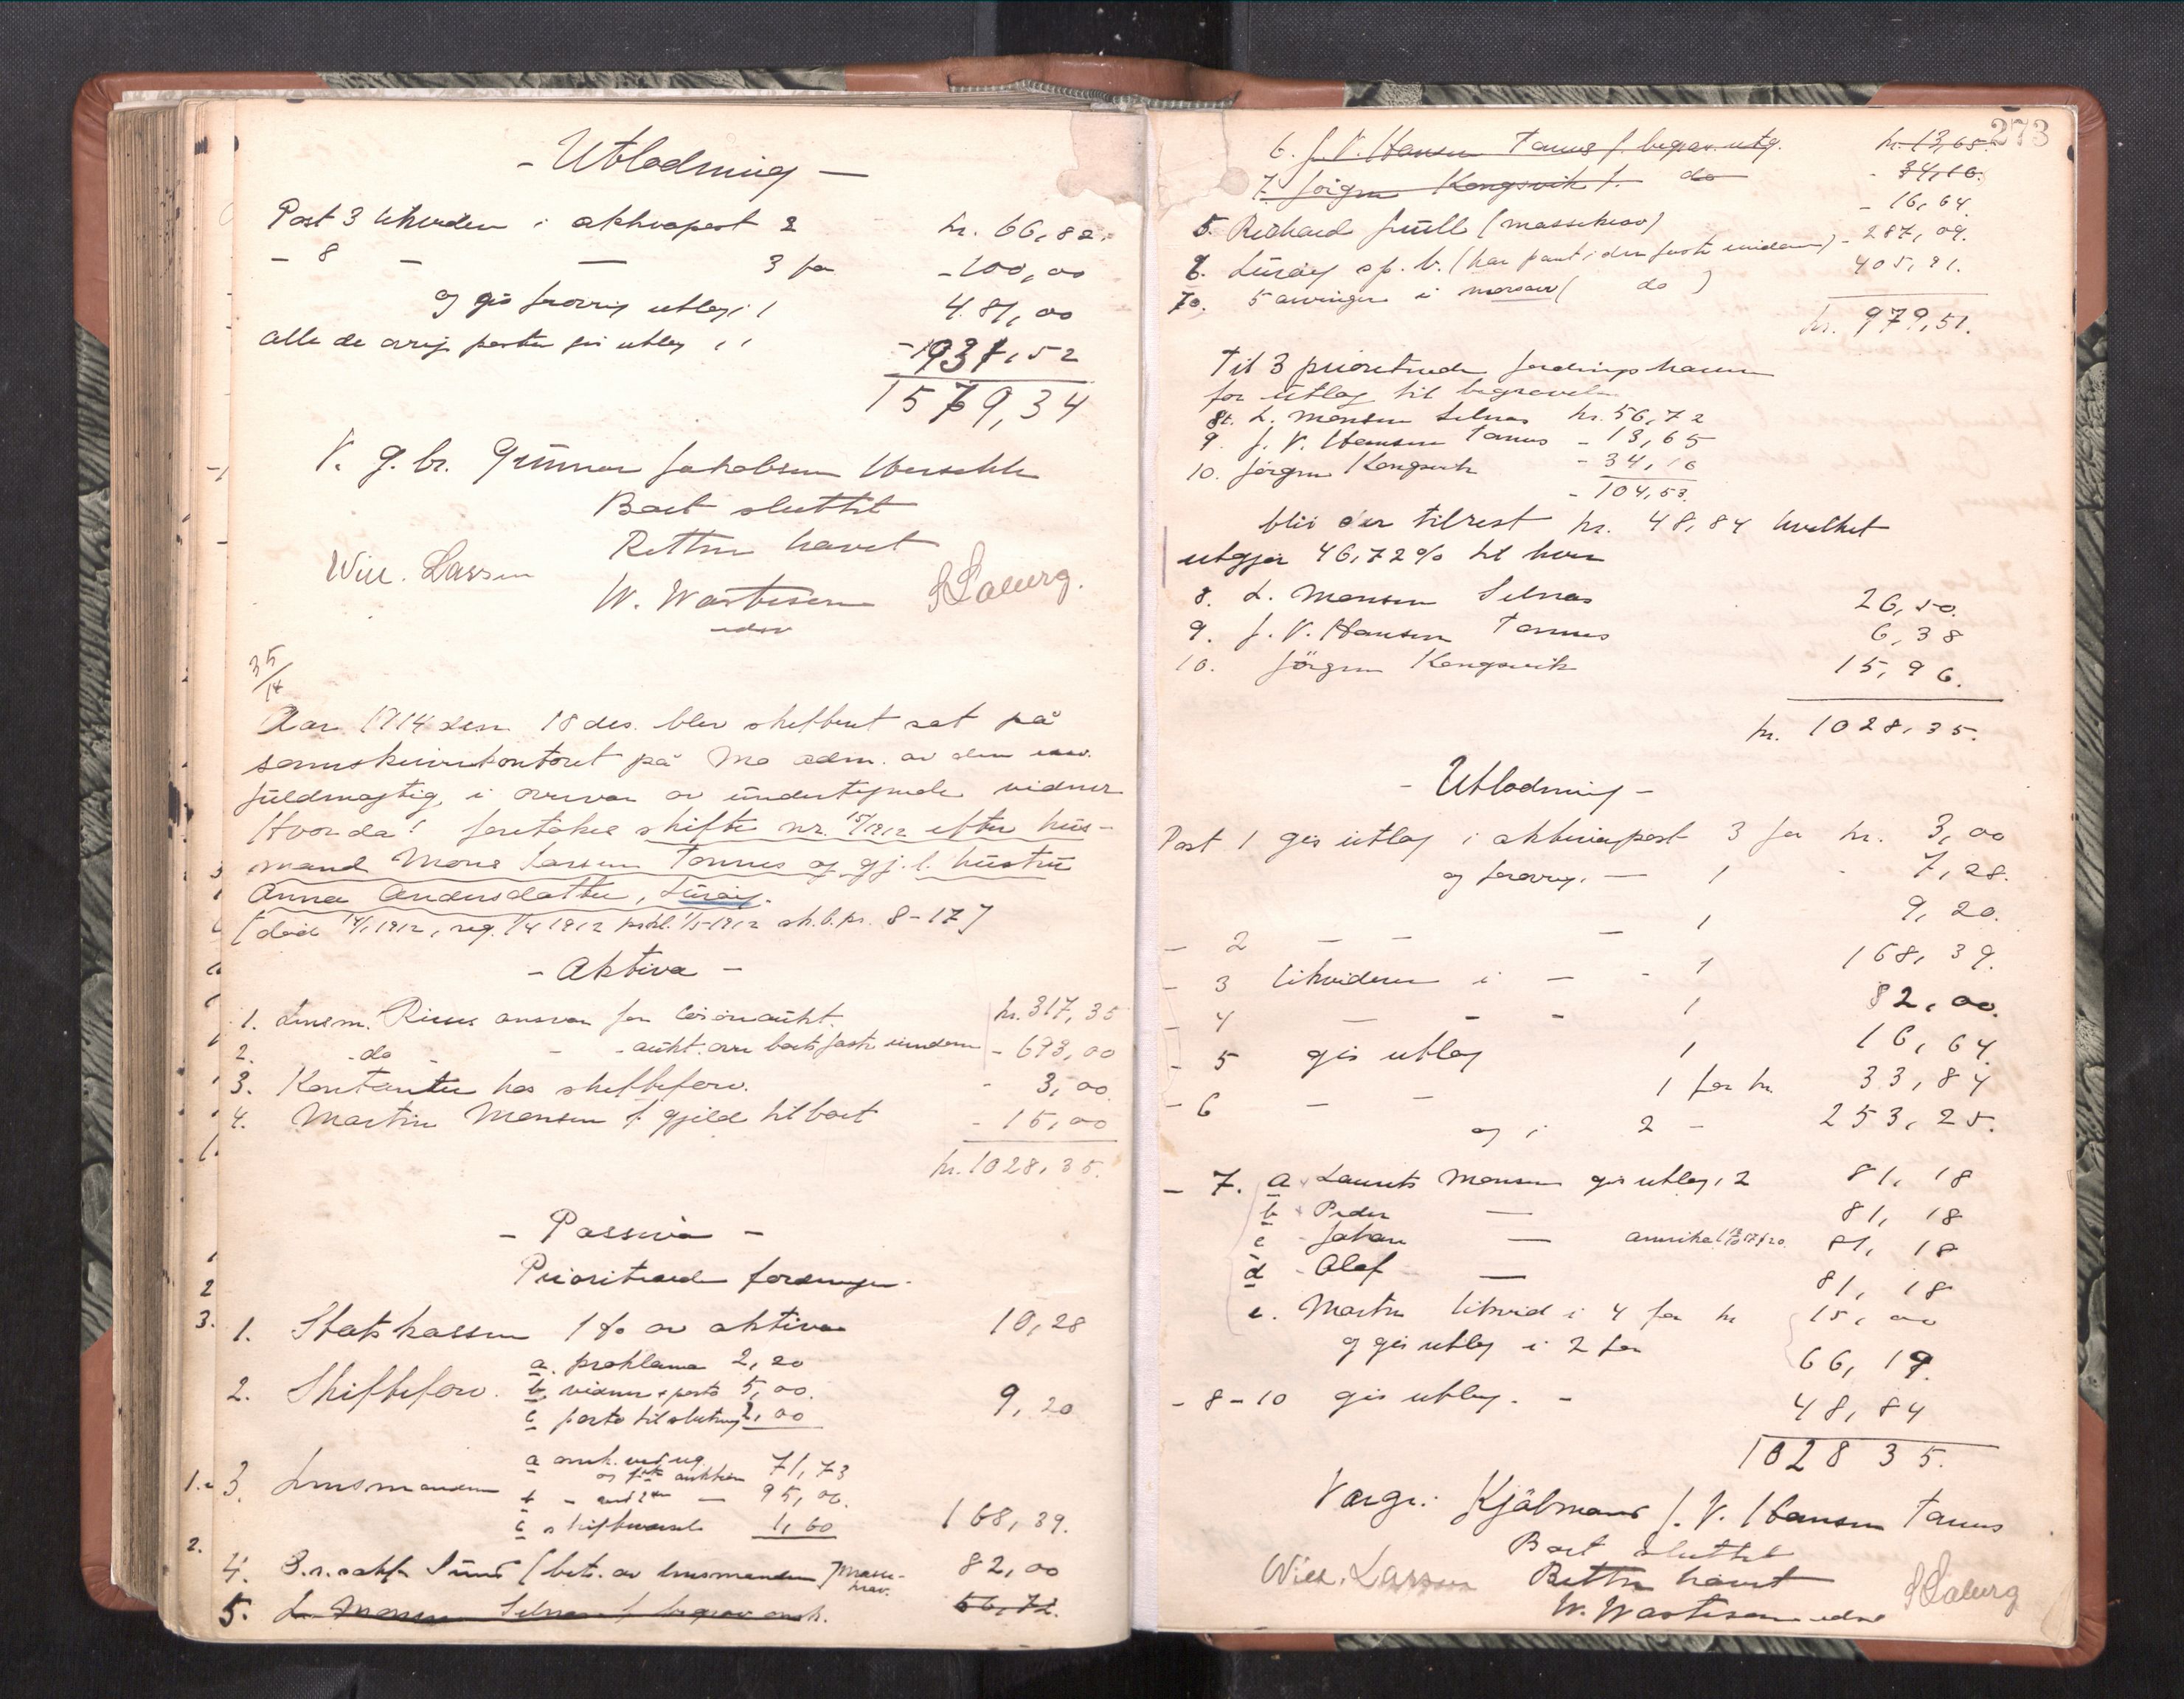 - Utlodning -
Post 3 likvideres i aktivapost 2 kr. 66,82.
- 8 - — 3 for - 100,00
og gis forøvrig utlæg i 1 481,00
alle de øvrige poster gis utlæg i 1 - 931,52
1579,34
V. g. br. Gunnar Jakobsen
Boet sluttet
Retten hævet
Will. Lassen W. Wartiesen S Solberg.
edsv
35/14
Aar 1914 den 18 des. blev skifteret sat på
sorenskriverkontoret på Mo adm. av den edsv.
fuldmægtig, i overvær av undertegnede vidner
Hvorda! foretokes skifte nr. 15/1912 efter hus-
mand Mons Larsen Tonnes og gj. l. hustru
Anna Andersdatter, Lurøy.
[død 14/1 1912, reg. 1/4 1912 prokl. 1/5 1912 sk.b.pr. 8-17]
- Aktiva -
1. Lensm. Riises ansvar for løsøreaukt. kr. 317,35
2. - do - - - aukt. over boets faste eiendom - 693,00
3. Kontanter hos skifteforv. - 3,00
4. Martin Monsen f. gjeld til boet - 15,00
kr. 1028,35.
- Passiva -
Prioriterede fordringer.
1. Statskassen 1% av aktiva 10,28
a. proklama 2,20
2. Skifteforv. b. vidner + porto 5,00. 9,20
c porto til slutning 2,00
a omk. ved reg. og 1ste auktion 71,73
3. Lensmanden b - ved 2den — 95,06.
c skiftevarsel 1,60 168,39.
4. O.r.sakf. Sund [bet. av lensmanden] massekrav. 82,00
5. L. Monsen Selnes f. begrav. omk. 56,72.
273
6. J. V. Hansen Tonnes f. begrav. utg. kr. 13,65.
7. Jørgen Kongsvik f. do - 34,16.
5. Richard Juell (massekrav) - 16,64.
6. Lurøy sp. b. (har pant i den faste eiendom) - 287,09.
7. 5 arvinger i morsarv ( do ) 405,91.
kr. 979,51.
Til 3 prioriterede fordringshavere
for utlæg til begravelse
8. L. Monsen Selnes kr. 56,72
9. J. V. Hansen Tonnes - 13,65
10. Jørgen Kongsvik - 34,16
- 104,53.
blir der tilrest kr. 48,84 hvilket
utgjør 46,72% til hver
8. L. Monsen Selnes 26,50.
9. J. V. Hansen Tonnes 6,38
10. Jørgen Kongsvik 15,96.
kr. 1028,35.
- Utlodning -
Post 1 gis utlæg i aktivapost 3 for kr. 3,00
og forøvrig. — 1 - 7,28.
- 2 — — — 1 9,20.
- 3 likvideres i — - 1 168,39.
- 4 — - - 1 82,00.
- 5 gis utlæg 1 16,64.
- 6 — — 1 for kr. 33,84
og i 2 - 253,25.
- 7. a Laurits Monsen gis utlæg i 2 81,18
b Peder — 81,18
c Johan — amerika 81,18
d Olaf — 81,18
e. Martin likvid i 4 for kr 15,00
og gis utlæg i 2 for 66,19.
- 8-10 gis utlæg. - 48,84
1028 35.
Vorgr.: Kjøbmand J. V. Hansen Tonnes
Boet sluttet
Will. Lassen Retten hævet S Solberg
W. Wartiesen edsv